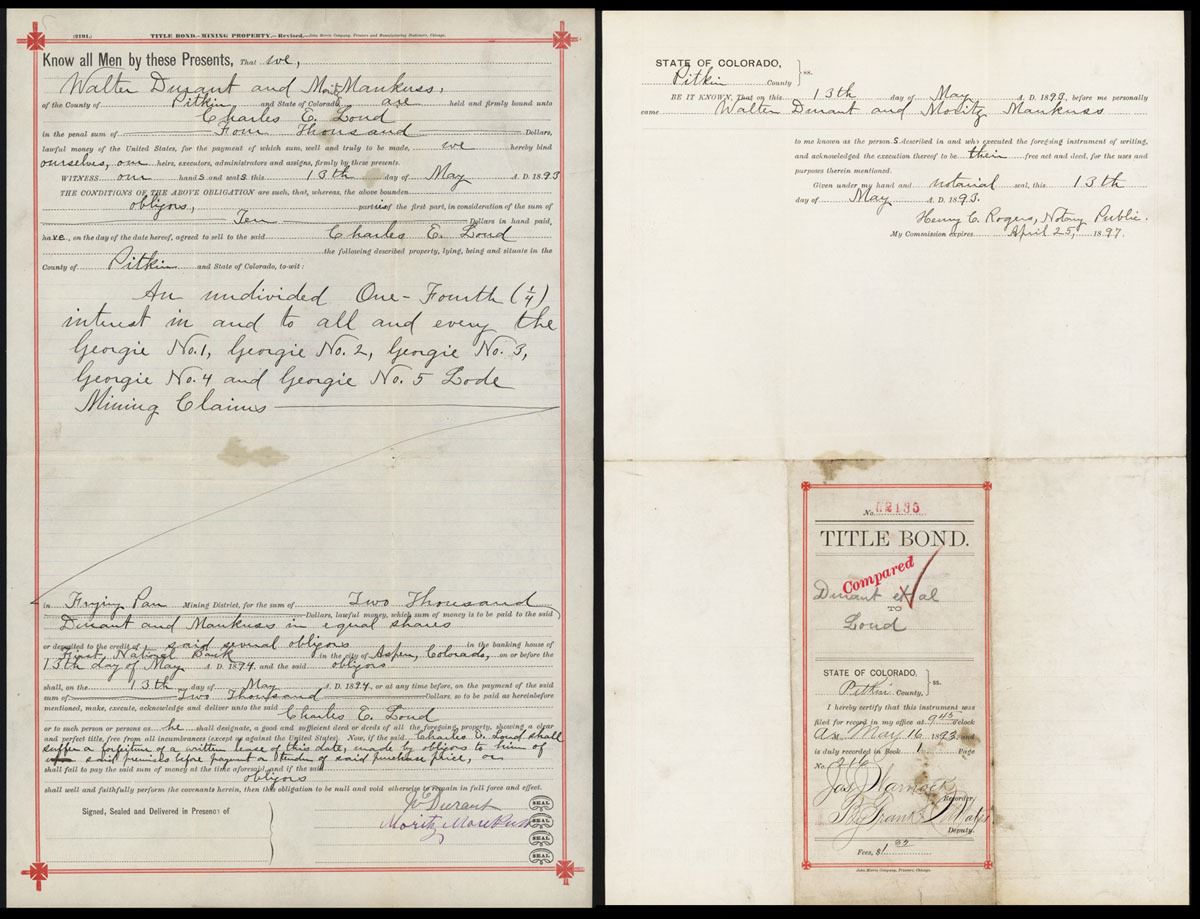 (2191.) TITLE BOND.—MINING PROPERTY.—Revised.—John Morris Company, Printers and Manufacturing Stationers, Chicago.
Know all Men by these Presents, That we,
Walter Durant and Moritz Mankuss,
of the County of Pitkin and State of Colorado are held and firmly bound unto
Charles E. Loud
in the penal sum of Four Thousand Dollars,
lawful money of the United States, for the payment of which sum, well and truly to be made, we hereby bind
ourselves, our heirs, executors, administrators and assigns, firmly by these presents.
WITNESS our hands and seals this 13th day of May A. D. 1893
THE CONDITIONS OF THE ABOVE OBLIGATION are such, that, whereas, the above bounden
obligors, parties of the first part, in consideration of the sum of
Ten Dollars in hand paid,
have, on the day of the date hereof, agreed to sell to the said Charles E. Loud
the following described property, lying, being and situate in the
County of Pitkin and State of Colorado, to-wit:
An undivided One-Fourth (1/4)
interest in and to all and every the
Georgie No. 1, Georgie No. 2, Georgie No. 3,
Georgie No. 4 and Georgie No. 5 Lode
Mining Claims
in Frying Pan Mining District, for the sum of Two Thousand
Dollars, lawful money, which sum of money is to be paid to the said
Durant and Mankuss in equal shares
or deposited to the credit of said several obligors in the banking house of
First National Bank in the city of Aspen, Colorado, on or before the
13th day of May A. D. 1894, and the said obligors
shall, on the 13th day of May A. D. 1894, or at any time before, on the payment of the said
sum of Two Thousand Dollars, so to be paid as hereinbefore
mentioned, make, execute, acknowledge and deliver unto said Charles E. Loud
or to such person or persons as he shall designate, a good and sufficient deed or deeds of all the foregoing property, showing a clear
and perfect title, free from all incumbrances (except as against the United States). Now, if the said Charles E. Loud shall
suffer a forfeiture of a written lease of this date, made by obligors to him of
said premises before payment or tender of said purchase price, or
shall fail to pay the said sum of money at the time aforesaid, and if the said
obligors
shall well and faithfully perform the covenants herein, then this obligation to be null and void otherwise to remain in full force and effect.
Signed, Sealed and Delivered in Presence of
W Durant SEAL
Moritz SEAL
SEAL
SEAL
STATE OF COLORADO, ss.
Pitkin County
BE IT KNOWN, That on this 13th day of May A. D. 1893, before me personally
came Walter Durant and Moritz Mankuss
to me known as the persons described in and who executed the foregoing instrument of writing,
and acknowledged the execution thereof to be their free act and deed, for the uses and
purposes therein mentioned.
Given under my hand and notarial seal, this 13th
day of May A. D. 1893.
Henry C. Rogers, Notary Public.
My Commission expires April 25, 1897.
No. 52135
TITLE BOND.
Compared
Durant et al
TO
Loud
STATE OF COLORADO, ss.
Pitkin County,
I hereby certify that this instrument was
filed for record in my office at 9 45 o'clock
A. M. May 16 1893, and
is duly recorded in Book Page
No.
Recorder
By
Deputy.
Fees, $1
John Morris Company, Printers, Chicago.